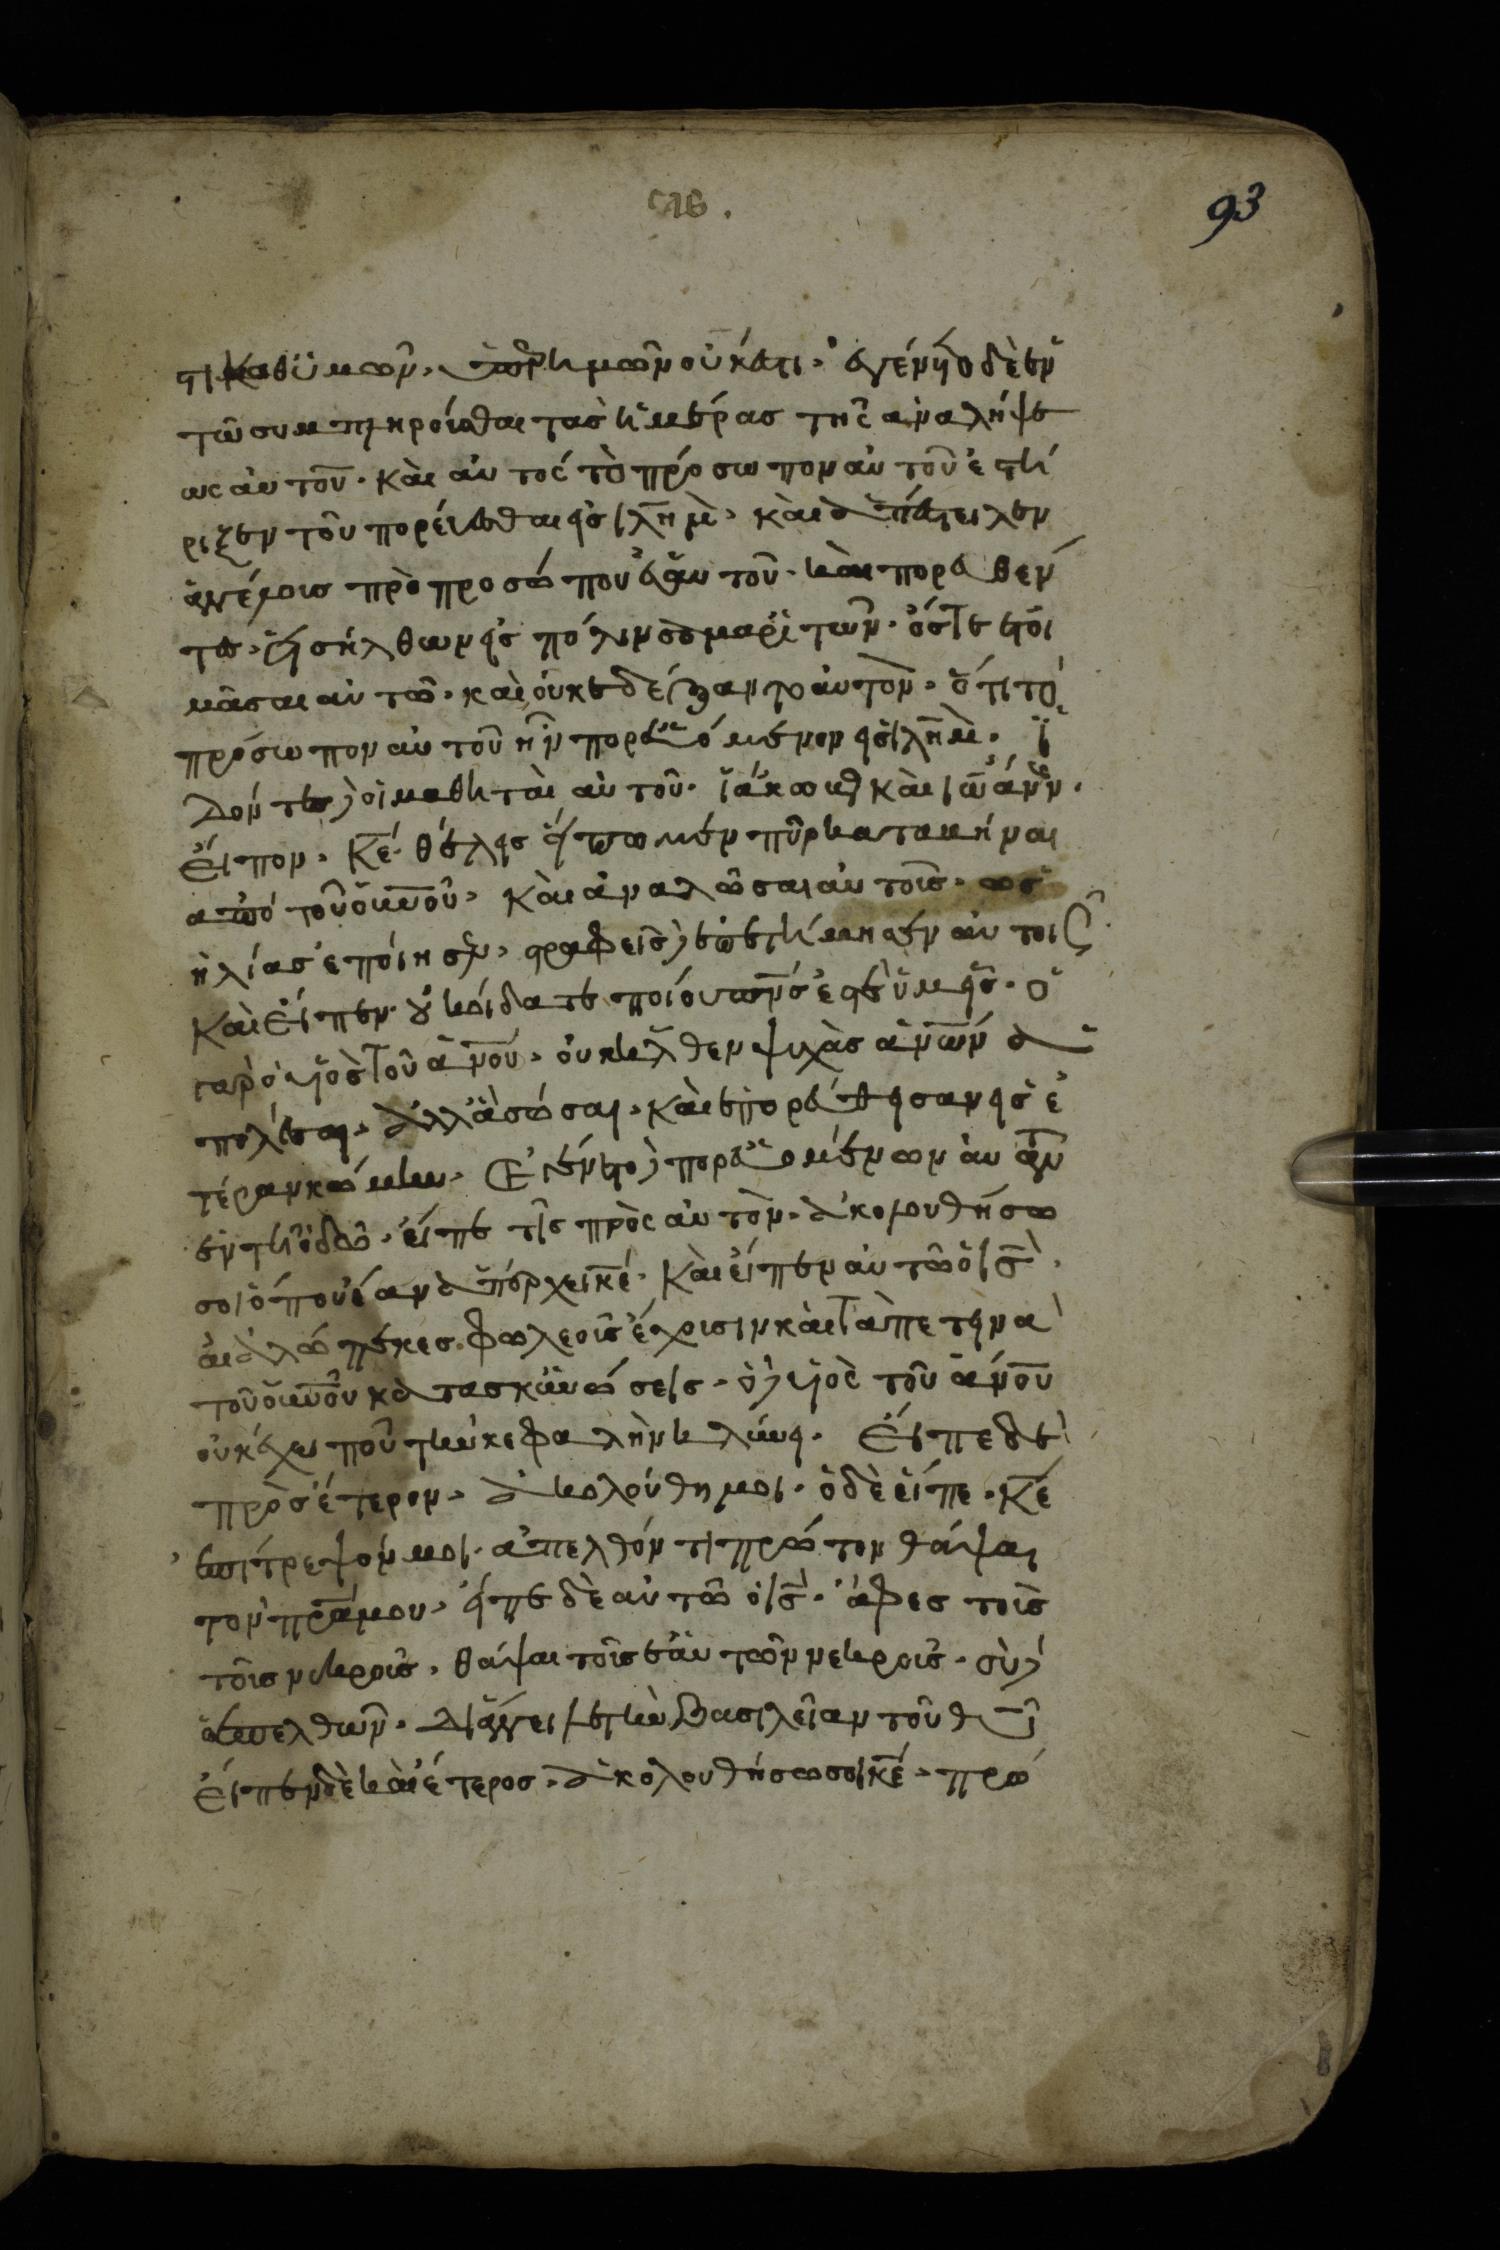 ϟιϛ.
93
τι καθ' ὑμῶν, ὑπὲρ ἡμῶν οὐκ ἔστι. ἐγένετο δὲ ἐν
τῶ συμπληροῦσθαι τὰς ἡμέρας τῆς ἀναλήψε
ως αὐτοῦ. καὶ αὐτὸς τὸ πρόσωπον αὐτοῦ ἐστή
ριξεν τοῦ πορεύεσθαι εἰς ιλημ. καὶ ἀπέστειλεν
ἀγγέλους πρὸ προσώπου ἑαυτοῦ. καὶ πορευθέν
τες, εἰσῆλθων εἰς πόλιν σαμαρϊτῶν. ὥστε ἑτοι
μάσαι αὐτῶ. καὶ οὐκ ἐδέξαντο αὐτὸν. ὅτι τὸ
πρόσωπον αὐτοῦ ἦν πορευόμενον εἰς ιλημ. ἰ
δόντες δὲ οἱ μαθηταὶ αὐτοῦ. ἰάκωβος καὶ ἰωάννης.
εἶπον. κε θέλεις εἴπωμεν πῦρ καταβῆναι
ἀπὸ τοῦ οὐνου, καὶ ἀναλῶσαι αὐτοὺς. ὡς
ἠλίας ἐποίησεν, στραφεὶς δὲ ἐπετίμησεν αὐτοῖς
καὶ εἶπεν. οὐκ οἴδατε ποίου πνς ἐστὲ ὑμεῖς. ὁ
γὰρ ὑιὸς τοῦ ανου, οὐκ ἦλθεν ψυχὰς ανων ἀ
πολέσαι, ἀλλὰ σῶσαι. καὶ ἐπορεύθησαν εἰς ἑ
τέραν κώμην. Ἐγένετο δὲ πορευομένων αὐτῶν
ἐν τῆ ὁδῶ. εἶπέ τις πρὸς αὐτὸν. ἀκολουθήσω
σοι ὅπου ἐὰν ἀπέρχει κε. καὶ εἶπεν αὐτῶ ὁ ις.
αἱ ἀλώπεκες φωλεοὺς ἔχουσιν καὶ τὰ πετεινὰ
τοῦ οὐνου κατασκηνώσεις. ὁ δὲ ὑιὸς τοῦ ανου
οὐκ ἔχει ποῦ τὴν κεφαλὴν κλίνει. Εἶπε δὲ
πρὸς ἕτερον, ἀκολούθη μοι. ὁ δὲ εἶπε. κε
ἐπίτρεψόν μοι. ἀπελθόντι πρῶτον θάψαι
τὸν πρα μου. εἶπε δὲ αὐτῶ ὁ ις. ἄφες τοὺς
τοὺς νεκροὺς, θάψαι τοὺς ἑαυτῶν νεκροὺς. σὺ δὲ
ἀπελθὼν. διάγγελλε τὴν βασιλείαν τοῦ θυ
Εἶπεν δὲ καὶ ἕτερος. ἀκολουθήσω σοι κε. πρῶ